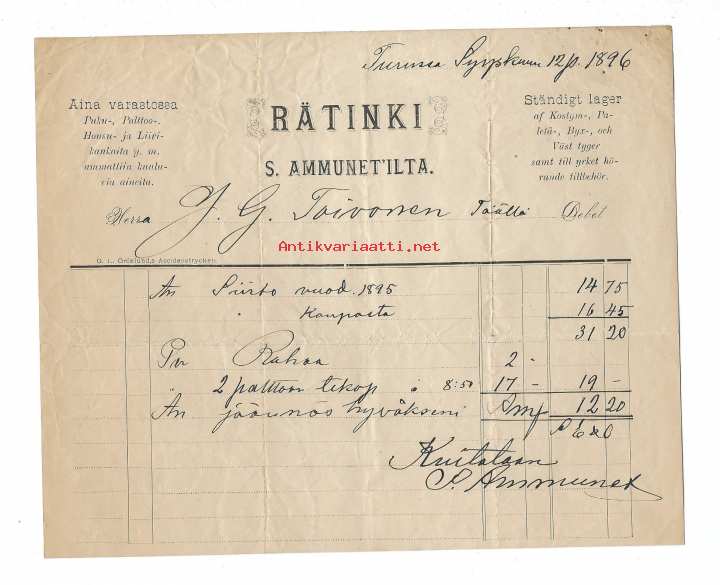 Turussa Syyskuun 12 p. 1896
Aina varastossa
Puku-, Palttoo-,
Housu- ja Liivi-
kankaita y. m.
ammattiin kuulu-
via aineita.
RÄTINKI
S. AMMUNET'ILTA.
Ständigt lager
af Kostym-, Pa-
letå-, Byx-, och
Väst tyger
samt till yrket hö-
rande tillbehör.
Herra J. G. Toivonen Täällä Debet
Antikvariaatti.net
G. L. Grönlund,s Accidenstryckeri.
An Siirto vuod. 1895 14 75
" Kaupasta 16 45
31 20
Per Rahaa 2 -
" 2 palttoon tekop. 8:50 17 - 19 -
An jäännös hyväkseni Smf 12 20
Kuitataan
S. Ammunet